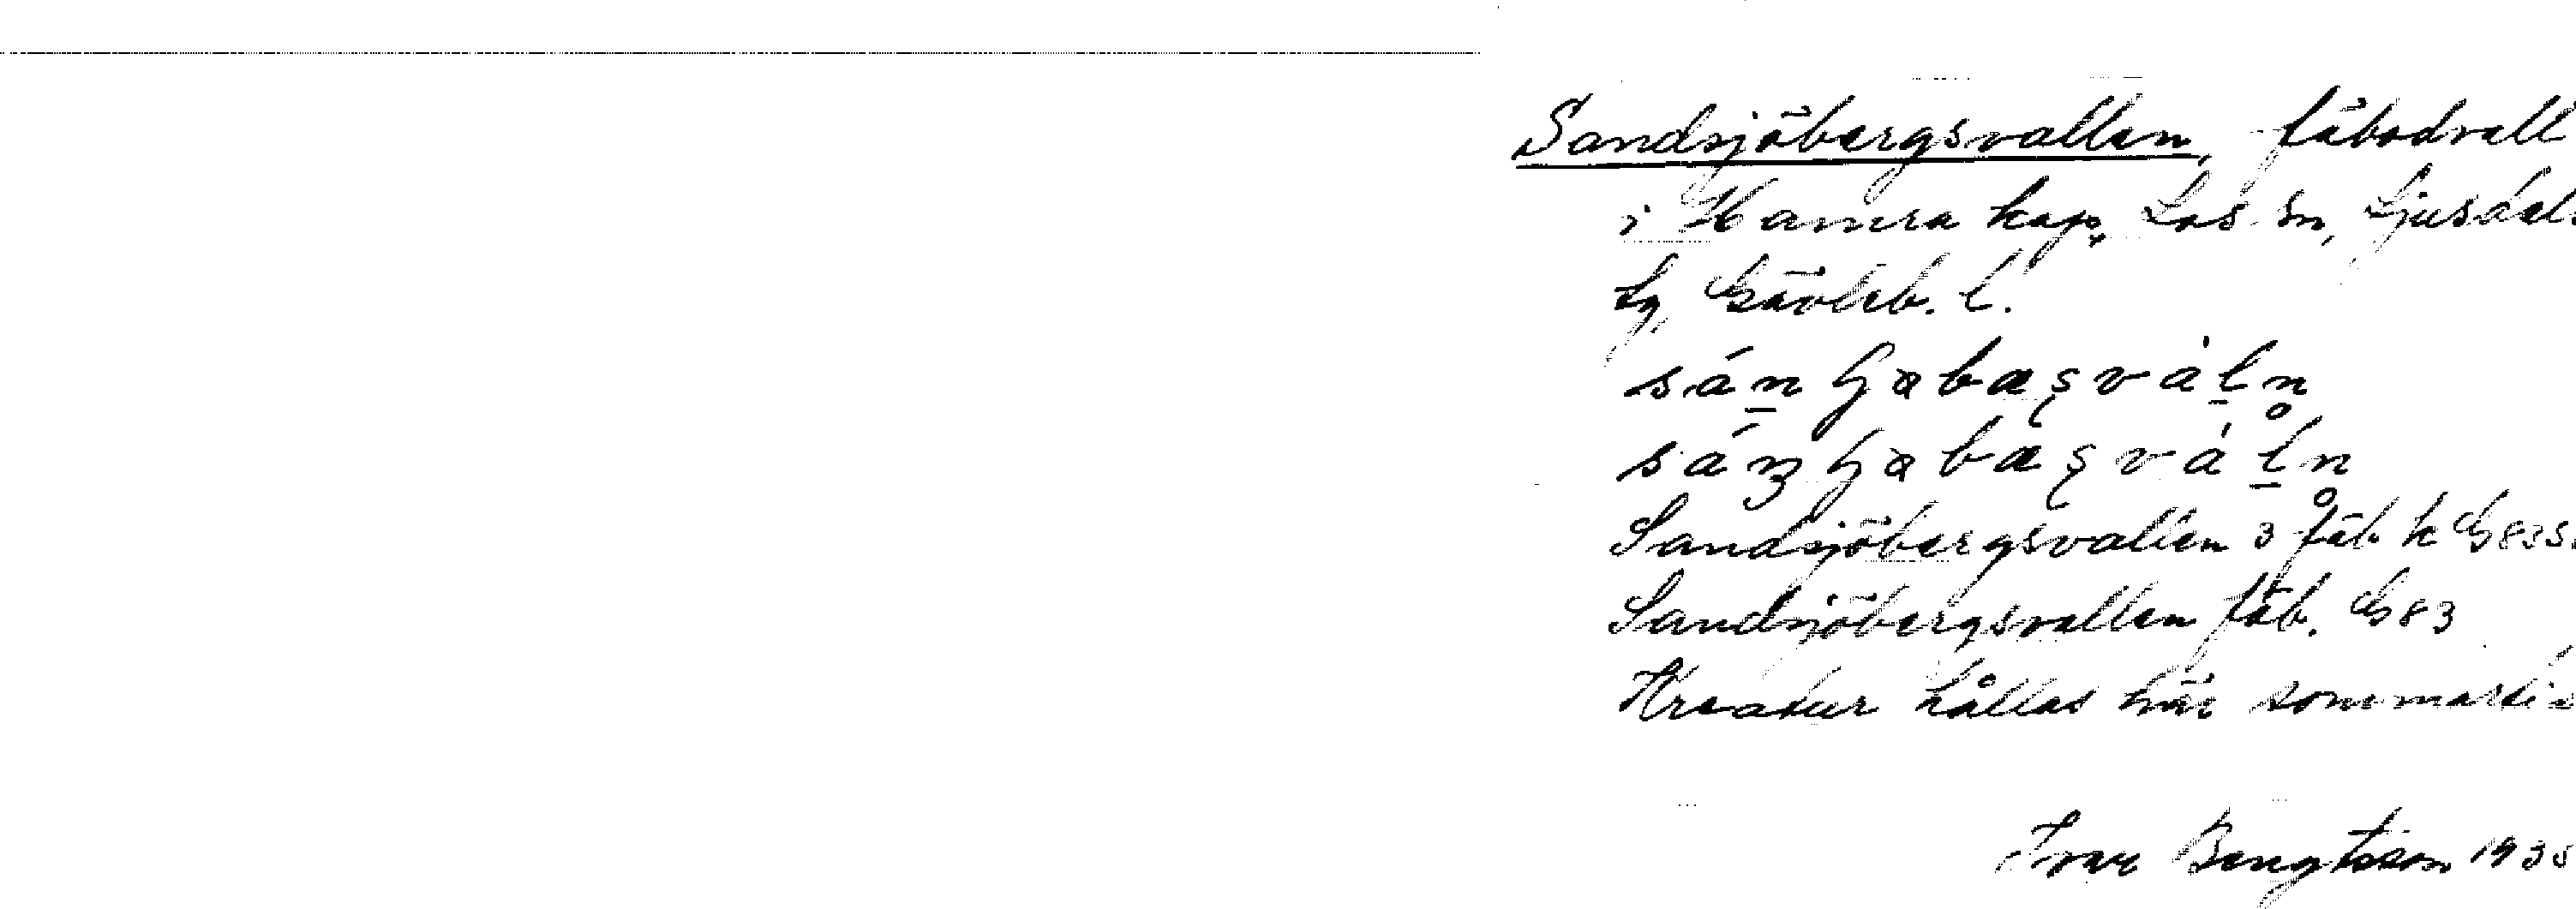 Sandsjöbergsvallen, fäbodvall
i Hamra kap, Los sn, Ljusdals
Lg, Gävleb. l.
Sandsjöbergsvallen 3 fäb k G835
Sandsjöbergsvallen fäb. G83
Kreatur hållas här sommartid
Ivar Bengtsson 1935